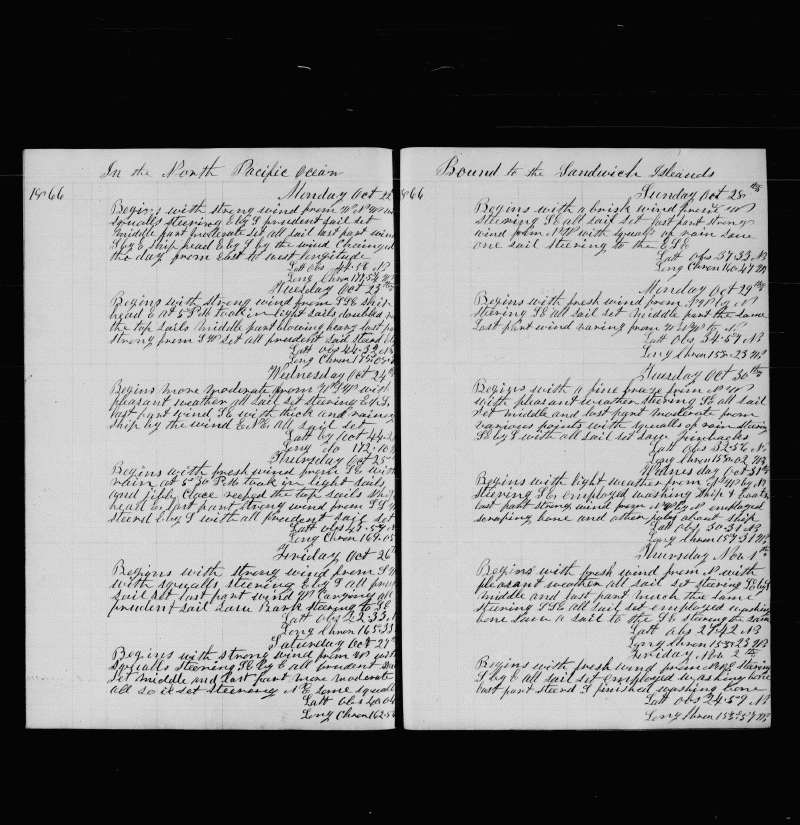 In the North Pacific Ocean
1866 Monday Oct 22
Begins with strong wind from W N W
squalls steering E by S prudent sail set
middle part moderate set all sail last part wind
S by E ship head E by S by the wind Changed
the day from East to west longitude
Latt obs 44.56 N
Long Chron 177.54 W
Tuesday Oct 23
Begins with strong wind from S S E ship
head E at 5 P M took in light sails doubled
the top sails middle part blowing heavy last
strong from S W set all prudent sail steerd E by
Latt obs 44.39 N
Long Chron
Wednesday Oct 24th
Begins more moderate from with
pleasant weather all sail set steering E by S,
last part wind S E with thick and rainey
ship by the wind E N E all sail set
Latt by Act 44.
Long do 172.10
Thursday Oct 25
Begins with fresh wind from S E with
rain at 5.30 P M took in light sails
and jibb Close reefed the top sails ship
head E last part strong wind from S S W
steerd E by S with all prudent sail set
Latt obs 43.57 N
Long Chron 169.05
Friday Oct 26th
Begins with strong wind from S W
with squalls steering E by S all prudent
sail set last part wind W Carrying all
prudent sail saw Bark steering to S E
Latt obs 33
Long Chron 165.33
Saturday Oct 27th
Begins with strong wind from W with
squalls steering S E by E all prudent sail
set middle and last part more moderate
all sail set steering some squalls
Latt obs 40.04
Long Chron 162.56
Bound to the Sandwich Islands
1866 Sunday Oct 28th
Begins with a brisk wind from W
steering S E all sail set last part strong
wind from N W with squalls of rain saw
one sail steering to the E S E
Latt obs 37.33 N
Long Chron 160.47 W
Monday Oct 29th
Begins with fresh wind from N W by N
steering S E all sail set middle part the same
Last part wind varing from W N W to N
Latt obs 34.57 N
Long Chron 158.23 W
Tuesday Oct 30th
Begins with a fine breeze from N W
with pleasant weather steering S E all sail
set middle and last part moderate from
various points with squalls of rain steering
S E by S with all sail set saw finbacks
Latt obs 32.56 N
Long Chron 158.02 W
Wednesday Oct 31st
Begins with light weather from N W by N
steering S E employed washing ship & boats
last part strong wind from N W by N employed
scraping bone and other jobs about ship
Latt obs 30.31 N
Long Chron 157.31 W
Thursday Nov 1th
Begins with fresh wind from N with
pleasant weather all sail set steering S E by S
middle and last part much the same
steering S S E all sail set employed washing
bone saw a sail to the S E steering the same
Latt obs 27.42 N
Long Chron 155.23 W
Friday Nov 2th
Begins with fresh wind from N N E steering
S by E all sail set employed washing bone
last part steerd S finished washing bone
Latt obs 24.59 N
Long Chron 155.57 W